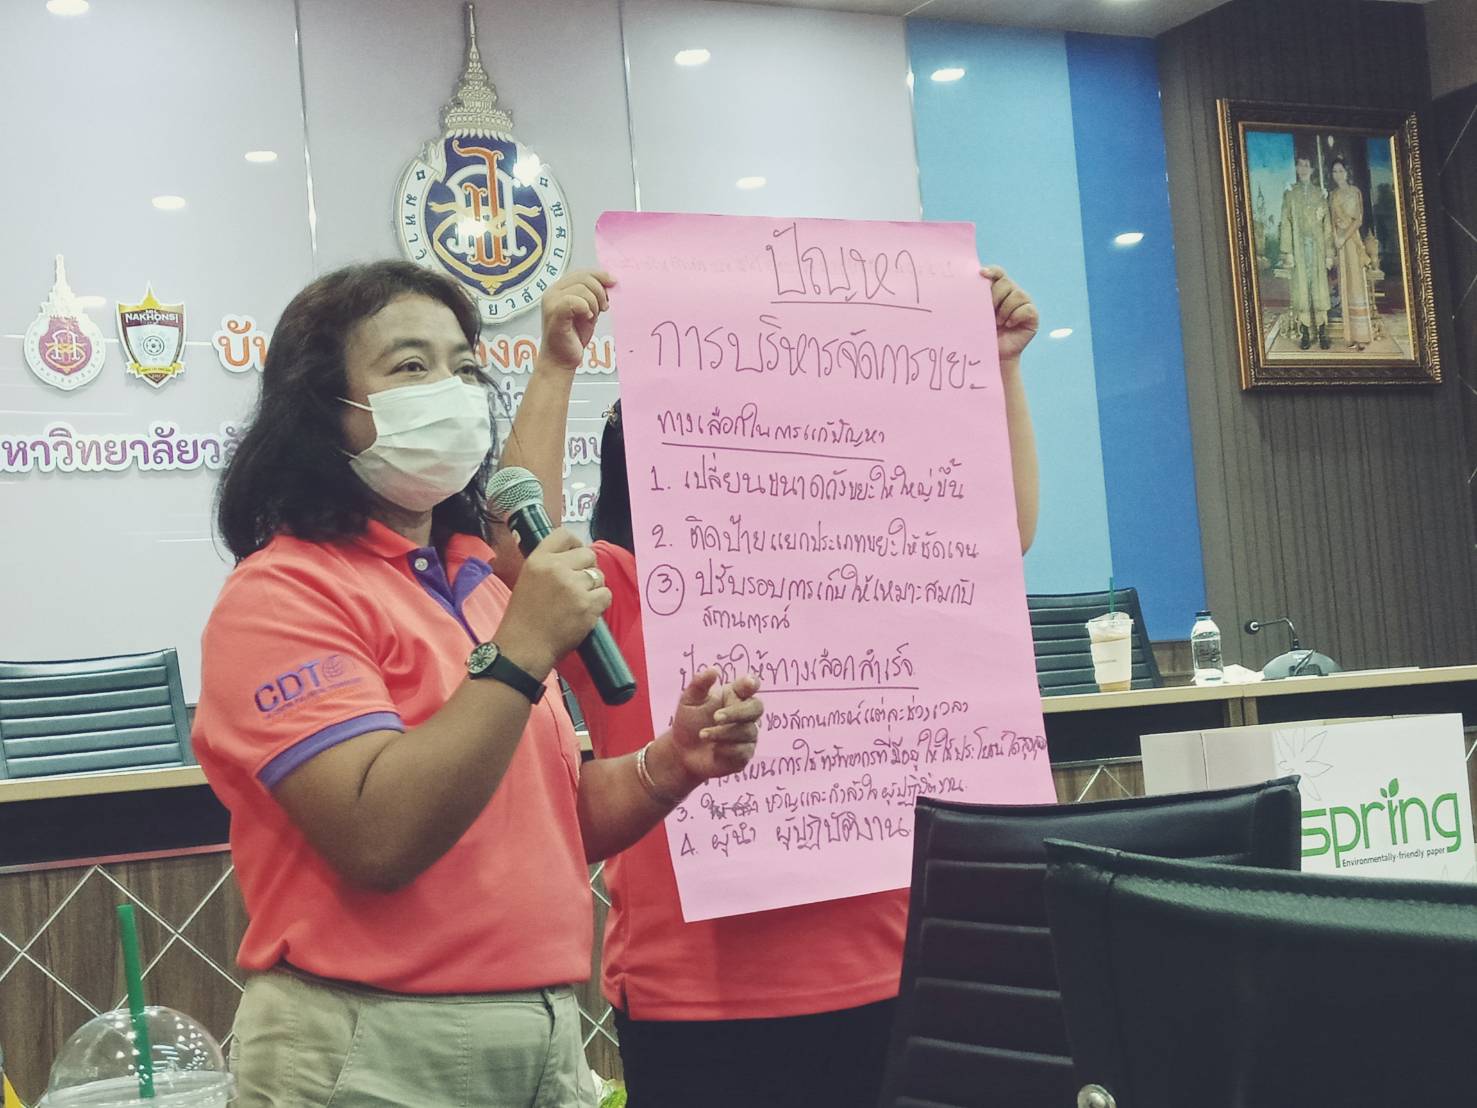 NAKHONSI
มหาวิทยาลัย
ปัญหา
การบริหารจัดการขยะ
ทางเลือกในการแก้ปัญหา
1. เปลี่ยนขนาดถังขยะให้ใหญ่ขึ้น
2. ติดป้ายแยกประเภทขยะให้ชัดเจน
3. ปรับรอบการเก็บให้เหมาะสมกับ
สถานการณ์
ให้ทางเลือกสำเร็จ
ของสถานการณ์แต่ละช่วงเวลา
การใช้ทรัพยากรที่มีอยู่ให้ใช้ประโยชน์ได้
3. ขวัญและกำลังใจผู้ปฏิบัติงาน
4. ผู้นำ ผู้ปฏิบัติงาน
CDT
spring
Environmentally-friendly paper